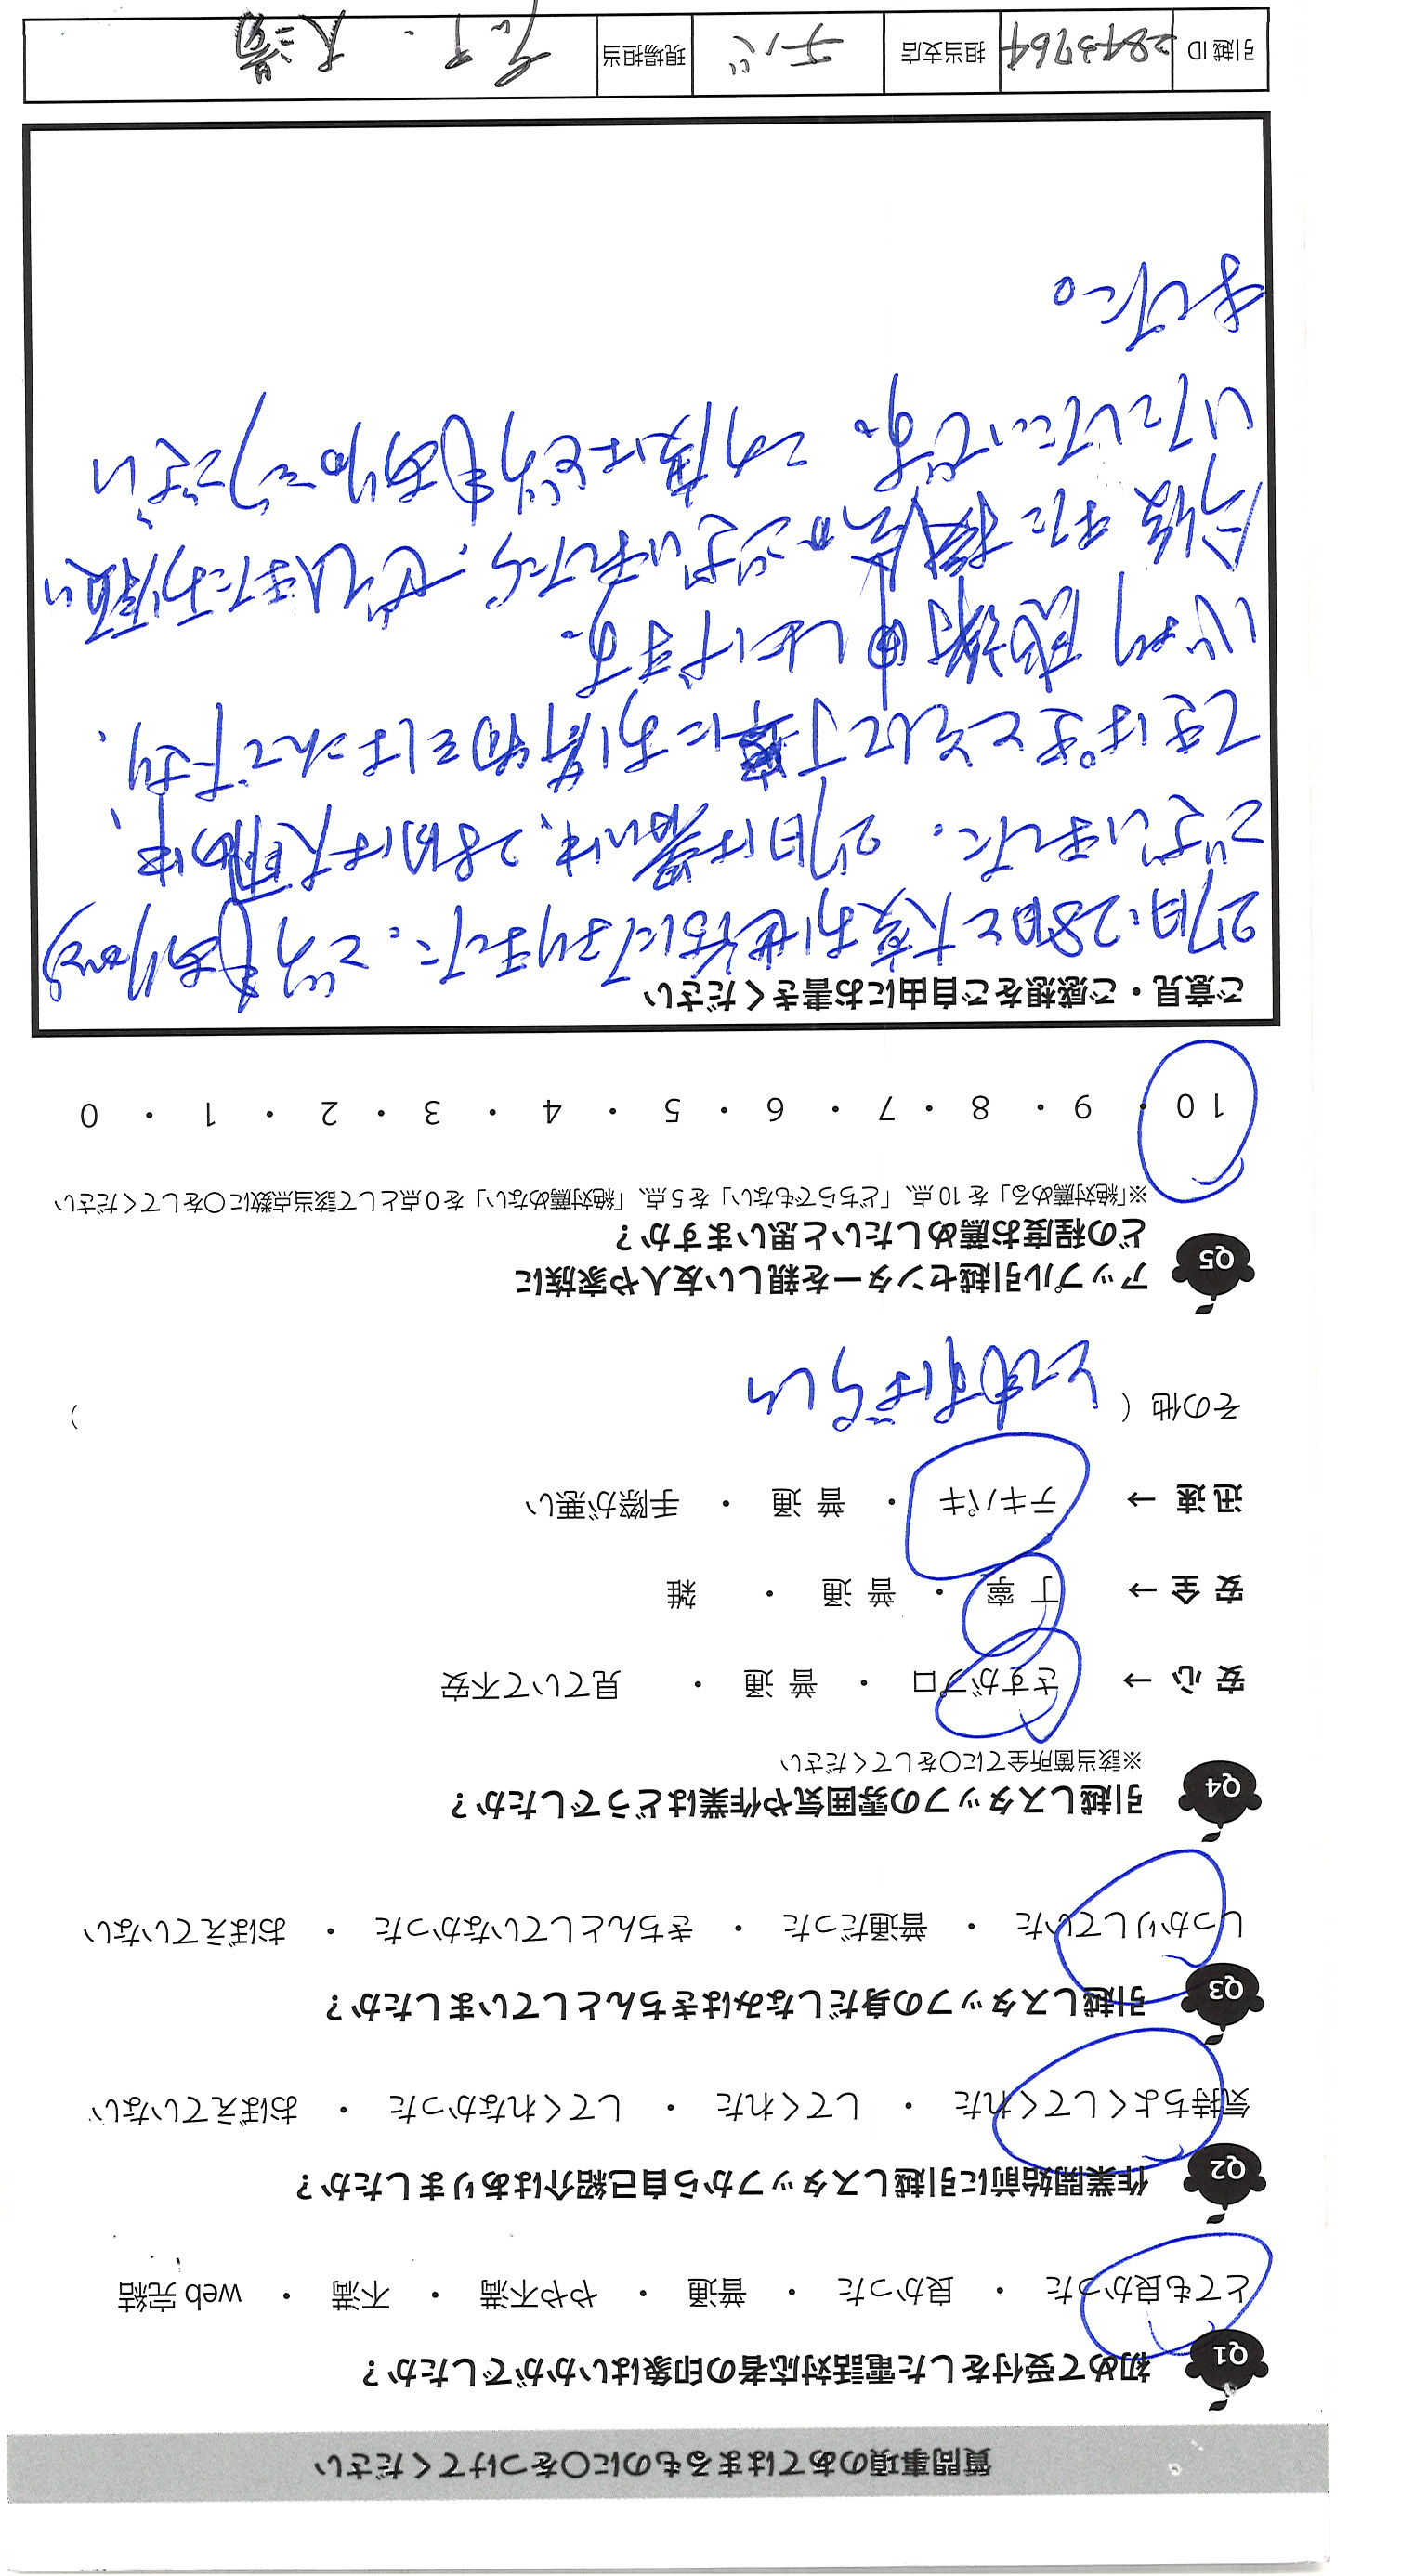 質問事項のあてはまるものに○をつけてください
Q1 初めて受付をした電話対応者の印象はいかがでしたか？
とても良かった ・ 良かった ・ 普通 ・ やや不満 ・ 不満 ・ web 完結
Q2 作業開始前に引越しスタッフから自己紹介はありましたか？
気持ちよくしてくれた ・ してくれた ・ してくれなかった ・ おぼえていない
Q3 引越しスタッフの身だしなみはきちんとしていましたか？
しっかりしていた ・ 普通だった ・ きちんとしていなかった ・ おぼえていない
Q4 引越しスタッフの雰囲気や作業はどうでしたか？
※該当箇所全てに○をしてください
安 心 → さすがプロ ・ 普 通 ・ 見ていて不安
安 全 → 丁 寧 ・ 普 通 ・ 雑
迅 速 → テキパキ ・ 普 通 ・ 手際が悪い
その他（ とてもすばらしい ）
Q5 アップル引越センターを親しい友人や家族に
どの程度お薦めしたいと思いますか？
※「絶対薦める」を 10 点、「どちらでもない」を 5 点、「絶対薦めない」を 0 点として該当点数に○をしてください
10 ・ 9 ・ 8 ・ 7 ・ 6 ・ 5 ・ 4 ・ 3 ・ 2 ・ 1 ・ 0
ご意見・ご感想をご自由にお書きください
27日、28日と大変お世話になりました。どうもありがとう
ございました。27日は暑い中、28日は大雨の中、
てきぱきとそして丁寧にお荷物をはこんで下さり、
心より感謝申し上げます。
今後また機会がございましたら、ぜひまたお願い
いたしたいです。この度はどうもありがとうござい
ました。
引越 ID 2843764 担当支店 チバ 現場担当